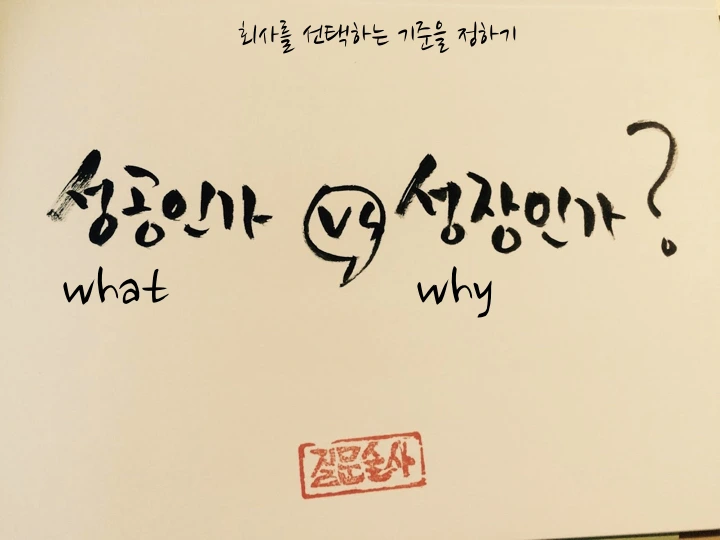 회사를 선택하는 기준을 정하기
성공인가 vs 성장인가?
what why
질문술사